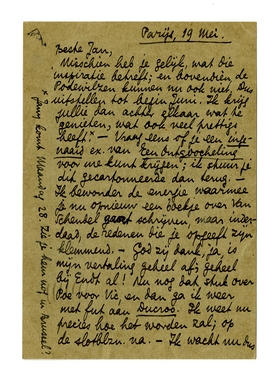 Parijs, 19 Mei.
Beste Jan,
Misschien heb je gelijk, wat die
inspiratie betreft; en bovendien, de
Podewitzen kunnen nu ook niet. Dus
uitstellen tot begin Juni. Ik krijg
jullie dan achter elkaar wat te
genieten, wat ook veel prettiger
heeft.× – Vraag eens of je een
ex. van Een Ontgoocheling
voor me kunt krijgen; ik stuur je
dit gecartonneerde dan terug. –
Ik bewonder de energie waarmee
je nu opnieuw een boekje over Van
Schendel gaat schrijven, maar inder-
daad, de redenen die je opgeeft zijn
klemmend. – God zij dank, ja, is
mijn vertaling geheel af; geheel
bij Endt al! Nu nog dat stuk over
Poe voor Vic, en dan ga ik weer
met fut aan Ducroo. Ik weet nu
precies hoe het worden zal; op
de slotblzn. na. – Ik wacht nu dus
× Jany komt Maandag 28. Zie je hem nog in Brussel?